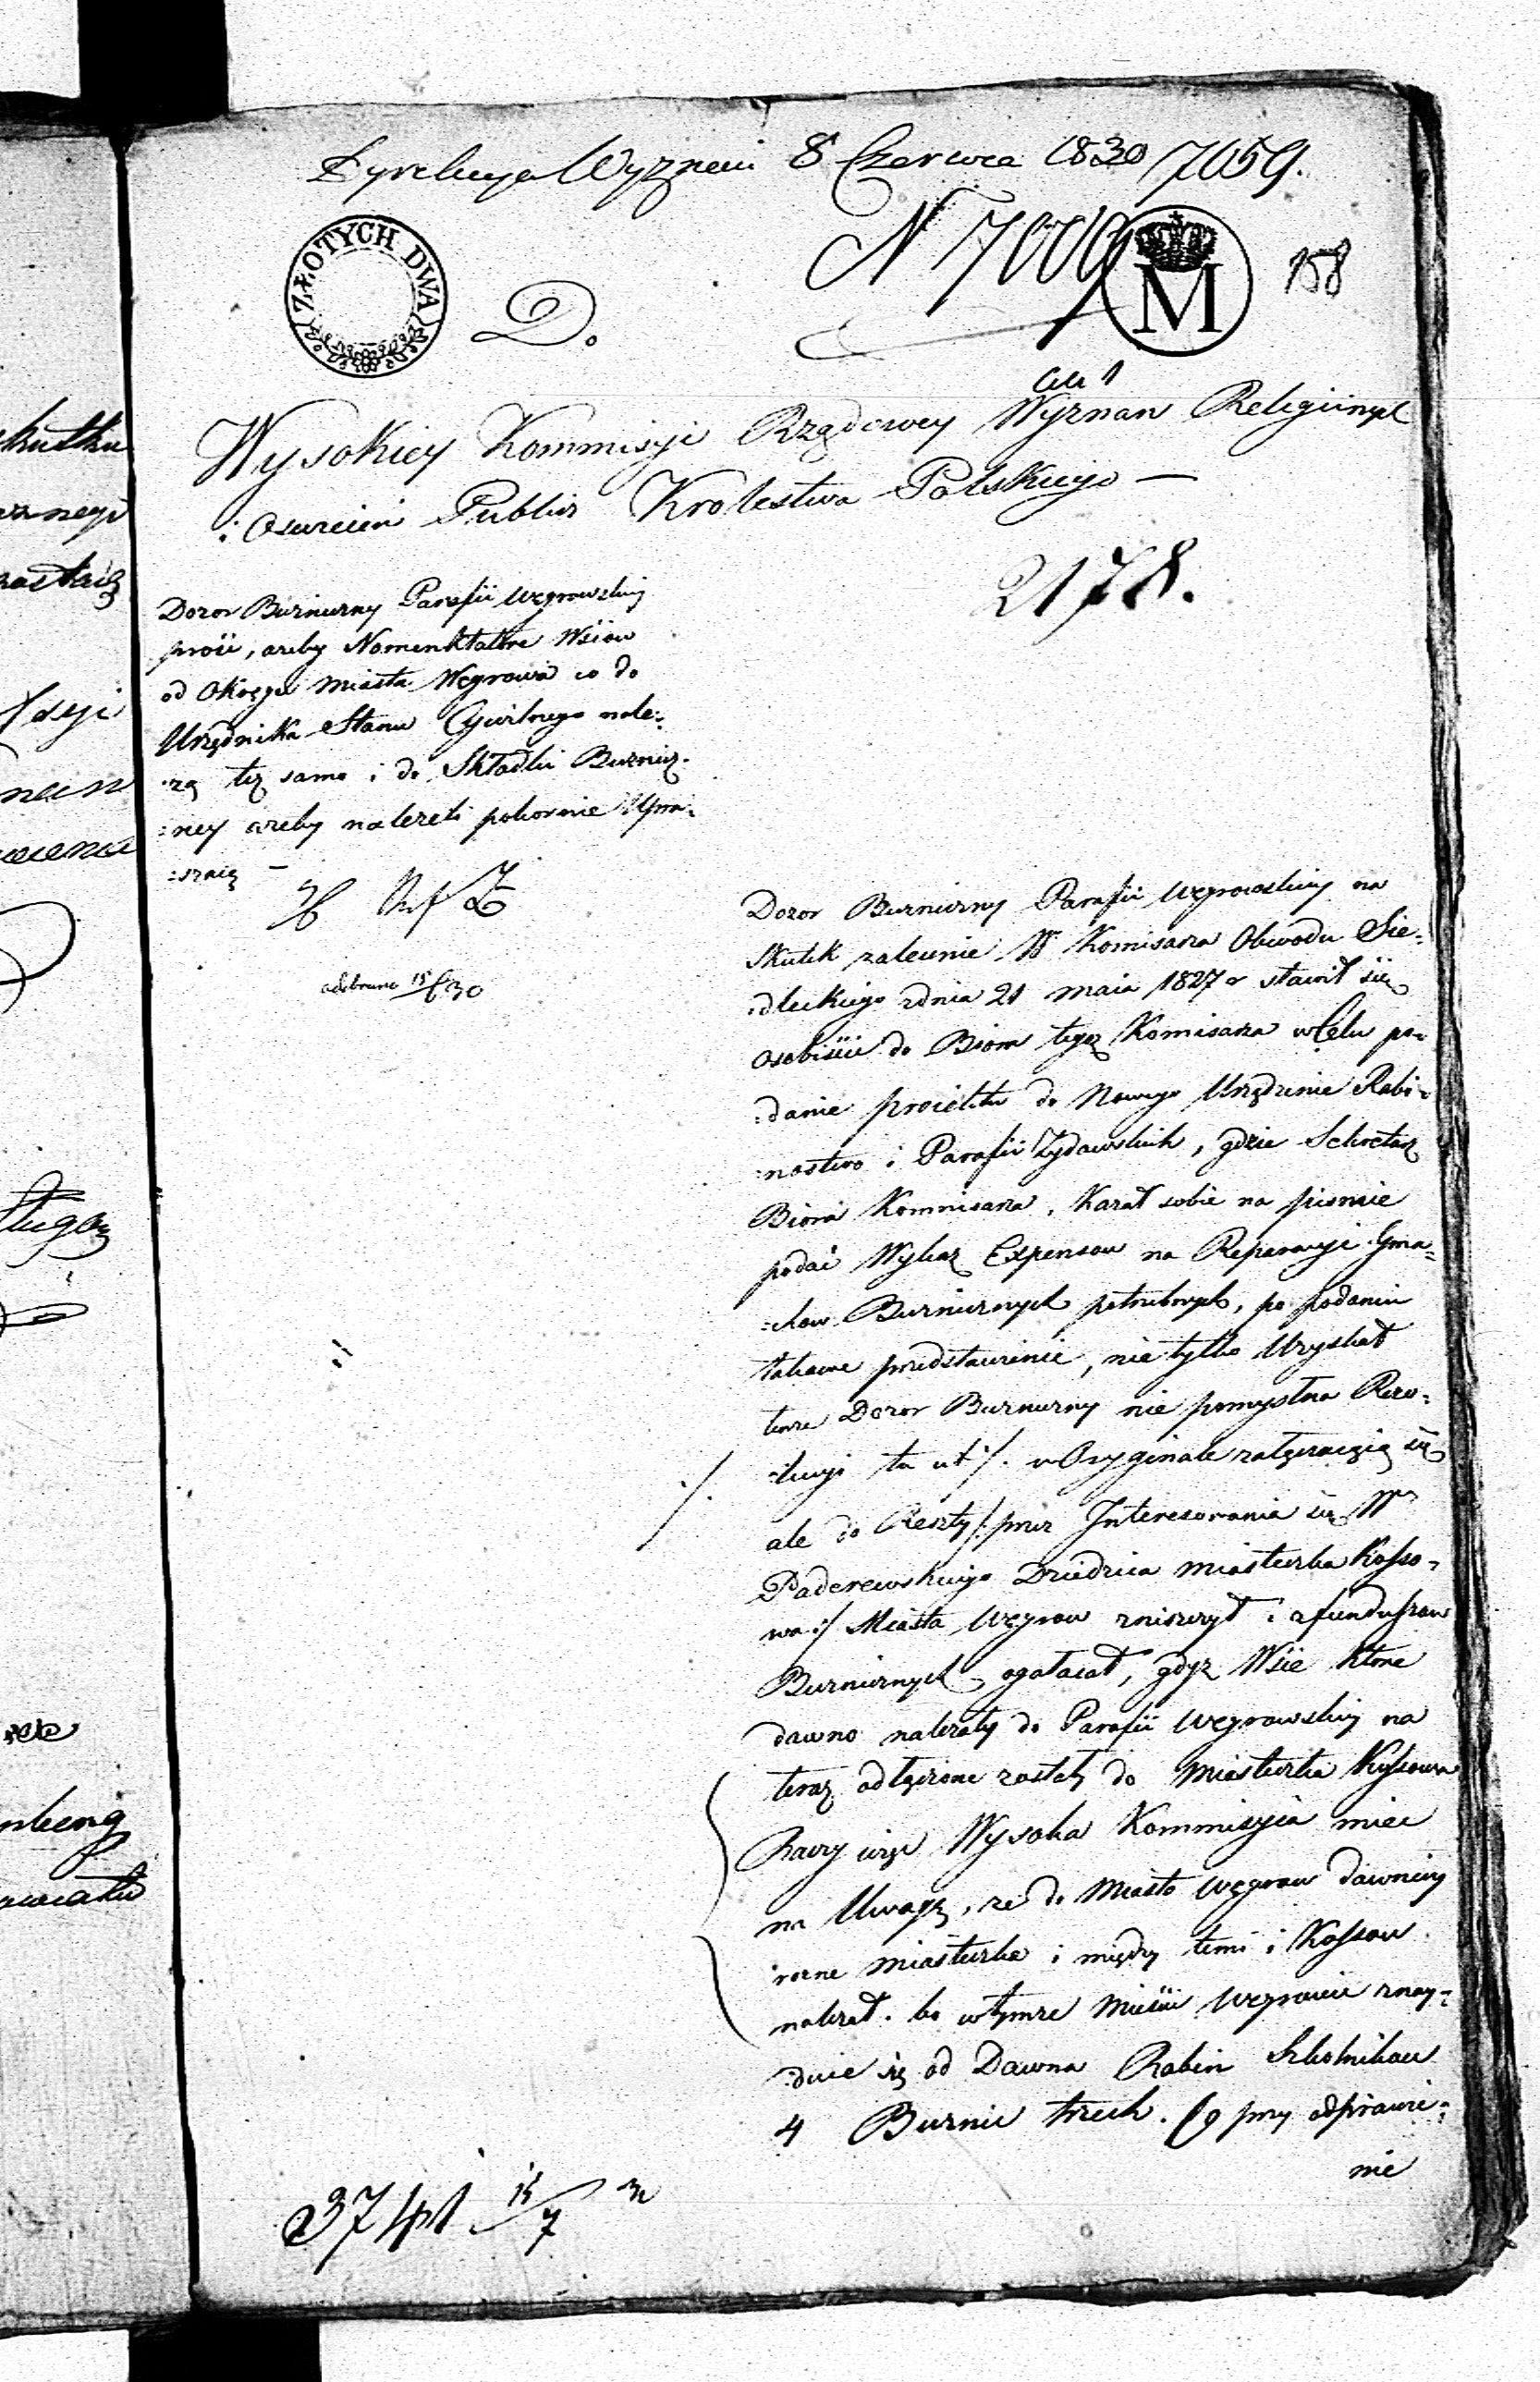 Dyrekcya Wyznań 8 Czerwca 1830 7059.
N 7009
ZŁOTYCH DWA
D.
M
158
Wysokiey Kommisyi Rządowey Wyznan Religiinych
i Oswiecen Public Krolestwa Polskiego —
2178.
Dozor Bużniczny Parafii Węgrowskiey
prosi, azeby Nomenklatore Wsiow
od Okręgu Miasta Węgrowa co do
Urzędnika Stanu Cywilnego nale:
:zą tez samo i do Składki Bużnicz.
:ney azeby nalezeli pokornie Upra:
:szaią —
odebrano 15/6 30
Dozor Bużniczny Parafii Węgrowskiey na
Skutek zalecenie W Komisarza Obwodu Sie:
:dleckiego zdnia 21 maia 1827 r stawił się
osobiscie do Biora tegoz Komisarza w Celu po:
:danie proiektu do Nowego Urządzenie Rabi:
:nostwo i Parafii Zydowskich, gdzie Sekretarz
Biora Kommisarza, Kazał sobie na pismie
podać Wykaz Expensow na Reparacyi Gma:
:chow Bużnicznych potrzebnych, po podaniu
takowe przedstawienie, nie tylko Uzyskał
tenze Dozor Bużniczny nie pomyslna Rezo:
:lucyi ta ut /. w Oryginale załącza się
ale do Reszty /: przez Interesowania się W
Paderewskiego Dziedzica miasteczka Kosso:
wa :/ Miasta Węgrow zniszczył i z funduszow
Bużnicznych ogołacał, gdyz Wsie które
dawno nalezały do Parafii Węgrowskiey na
teraz odłączone zostały do Miasteczka Kossowa
Raczy więc Wysoka Kommisyia mieć
na Uwagę, ze do Miasto Węgrow dawniey
rozne miasteczka i między temi i Kossow
nalezał. bo w tymze Miescie Węgrowie znay:
:duie się od Dawna Rabin Szkolnikow
4 Bużnic trzech. Co przy odprawie:
nie
3741 15/7 30